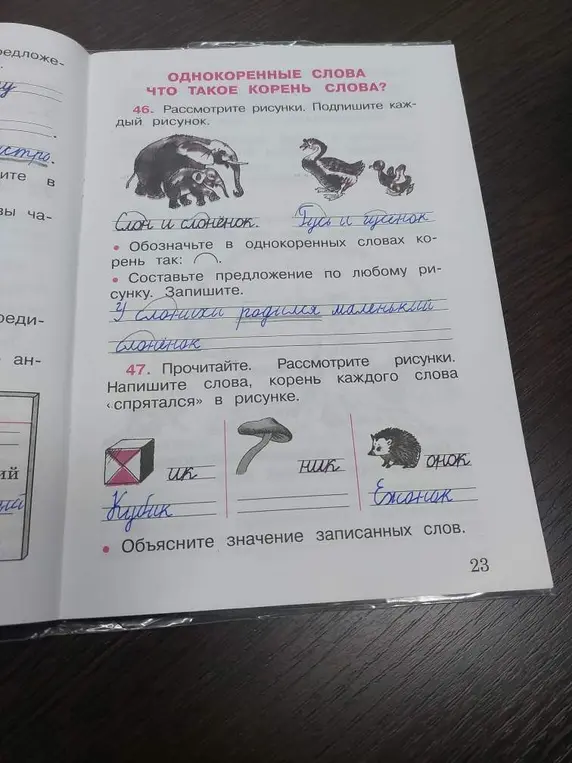 едложе-
.
ну
.
истро.
ите в
вы ча-
реди-
ан-
ий
ОДНОКОРЕННЫЕ СЛОВА
ЧТО ТАКОЕ КОРЕНЬ СЛОВА?
46. Рассмотрите рисунки. Подпишите каж-
дый рисунок.
Слон и слонёнок. Гусь и гусёнок
• Обозначьте в однокоренных словах ко-
рень так: ⌒.
• Составьте предложение по любому ри-
сунку. Запишите.
У слонихи родился маленький
слонёнок
47. Прочитайте. Рассмотрите рисунки.
Напишите слова, корень каждого слова
«спрятался» в рисунке.
ик ник онок
Кубик Ежонок
• Объясните значение записанных слов.
23